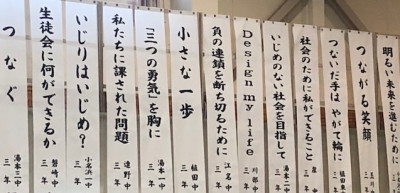 明るい未来を進むために
つながる笑顔
つないだ手は やがて輪に
植田中 三年
社会のために私ができること
泉中 三年
いじめのない社会を目指して
湯本一中 三年
Design my life
川部中 三年
負の連鎖を断ち切るために
江名中 三年
小さな一歩
植田中 三年
「三つの勇気」を胸に
湯本一中 三年
私たちに課された問題
遠野中 三年
いじりはいじめ？
小名浜一中 三年
生徒会に何ができるか
磐崎中 三年
つなぐ
湯本三中 三年